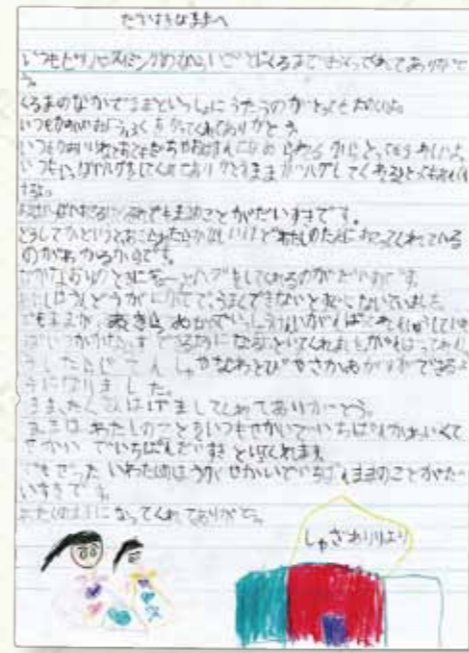 だいすきなままへ
いつもピアノやスイミングのならいごとにくるまでおくってくれてありがと
う。
くるまのなかでままといっしょにうたうのがとってもたのしいよ。
いつもかわいいおようふくをかってくれてありがとう。
いつもかわいいねとおともだちやおばさんに
られるからとってもうれしいよ。
いつもいっぱいハグをしてくれてありがとうままがハグしてくれるととっても
するよ。
でもままのことがだいすきです。
どうしてかというとおこられたらかなしいけどわたしのためにおこってくれている
のがわかるからです。
なかなおりのときにぎゅーっとハグをしてくれるのがだいすきです。
わたしはうんどうがにがてでうまくできないとすぐにないていました。
でもままがあきらめないでいっしょうけんめいがんばってれんしゅうしていれ
ばいつかかならずできるようになるといってくれましたがんばってれんしゅ
うしたらじてんしゃやなわとびやさかあがりができるよ
うになりました。
ままたくさんはげましてくれてありがとう。
ままはわたしのことをいつもせかいでいちばんかわいくて
せかいでいちばんだいすきといってくれます
でもぜったいわたしのほうがせかいでいちばんままのことがだ
いすきです。
わたしのままになってくれてありがとう。
しゃざありりより